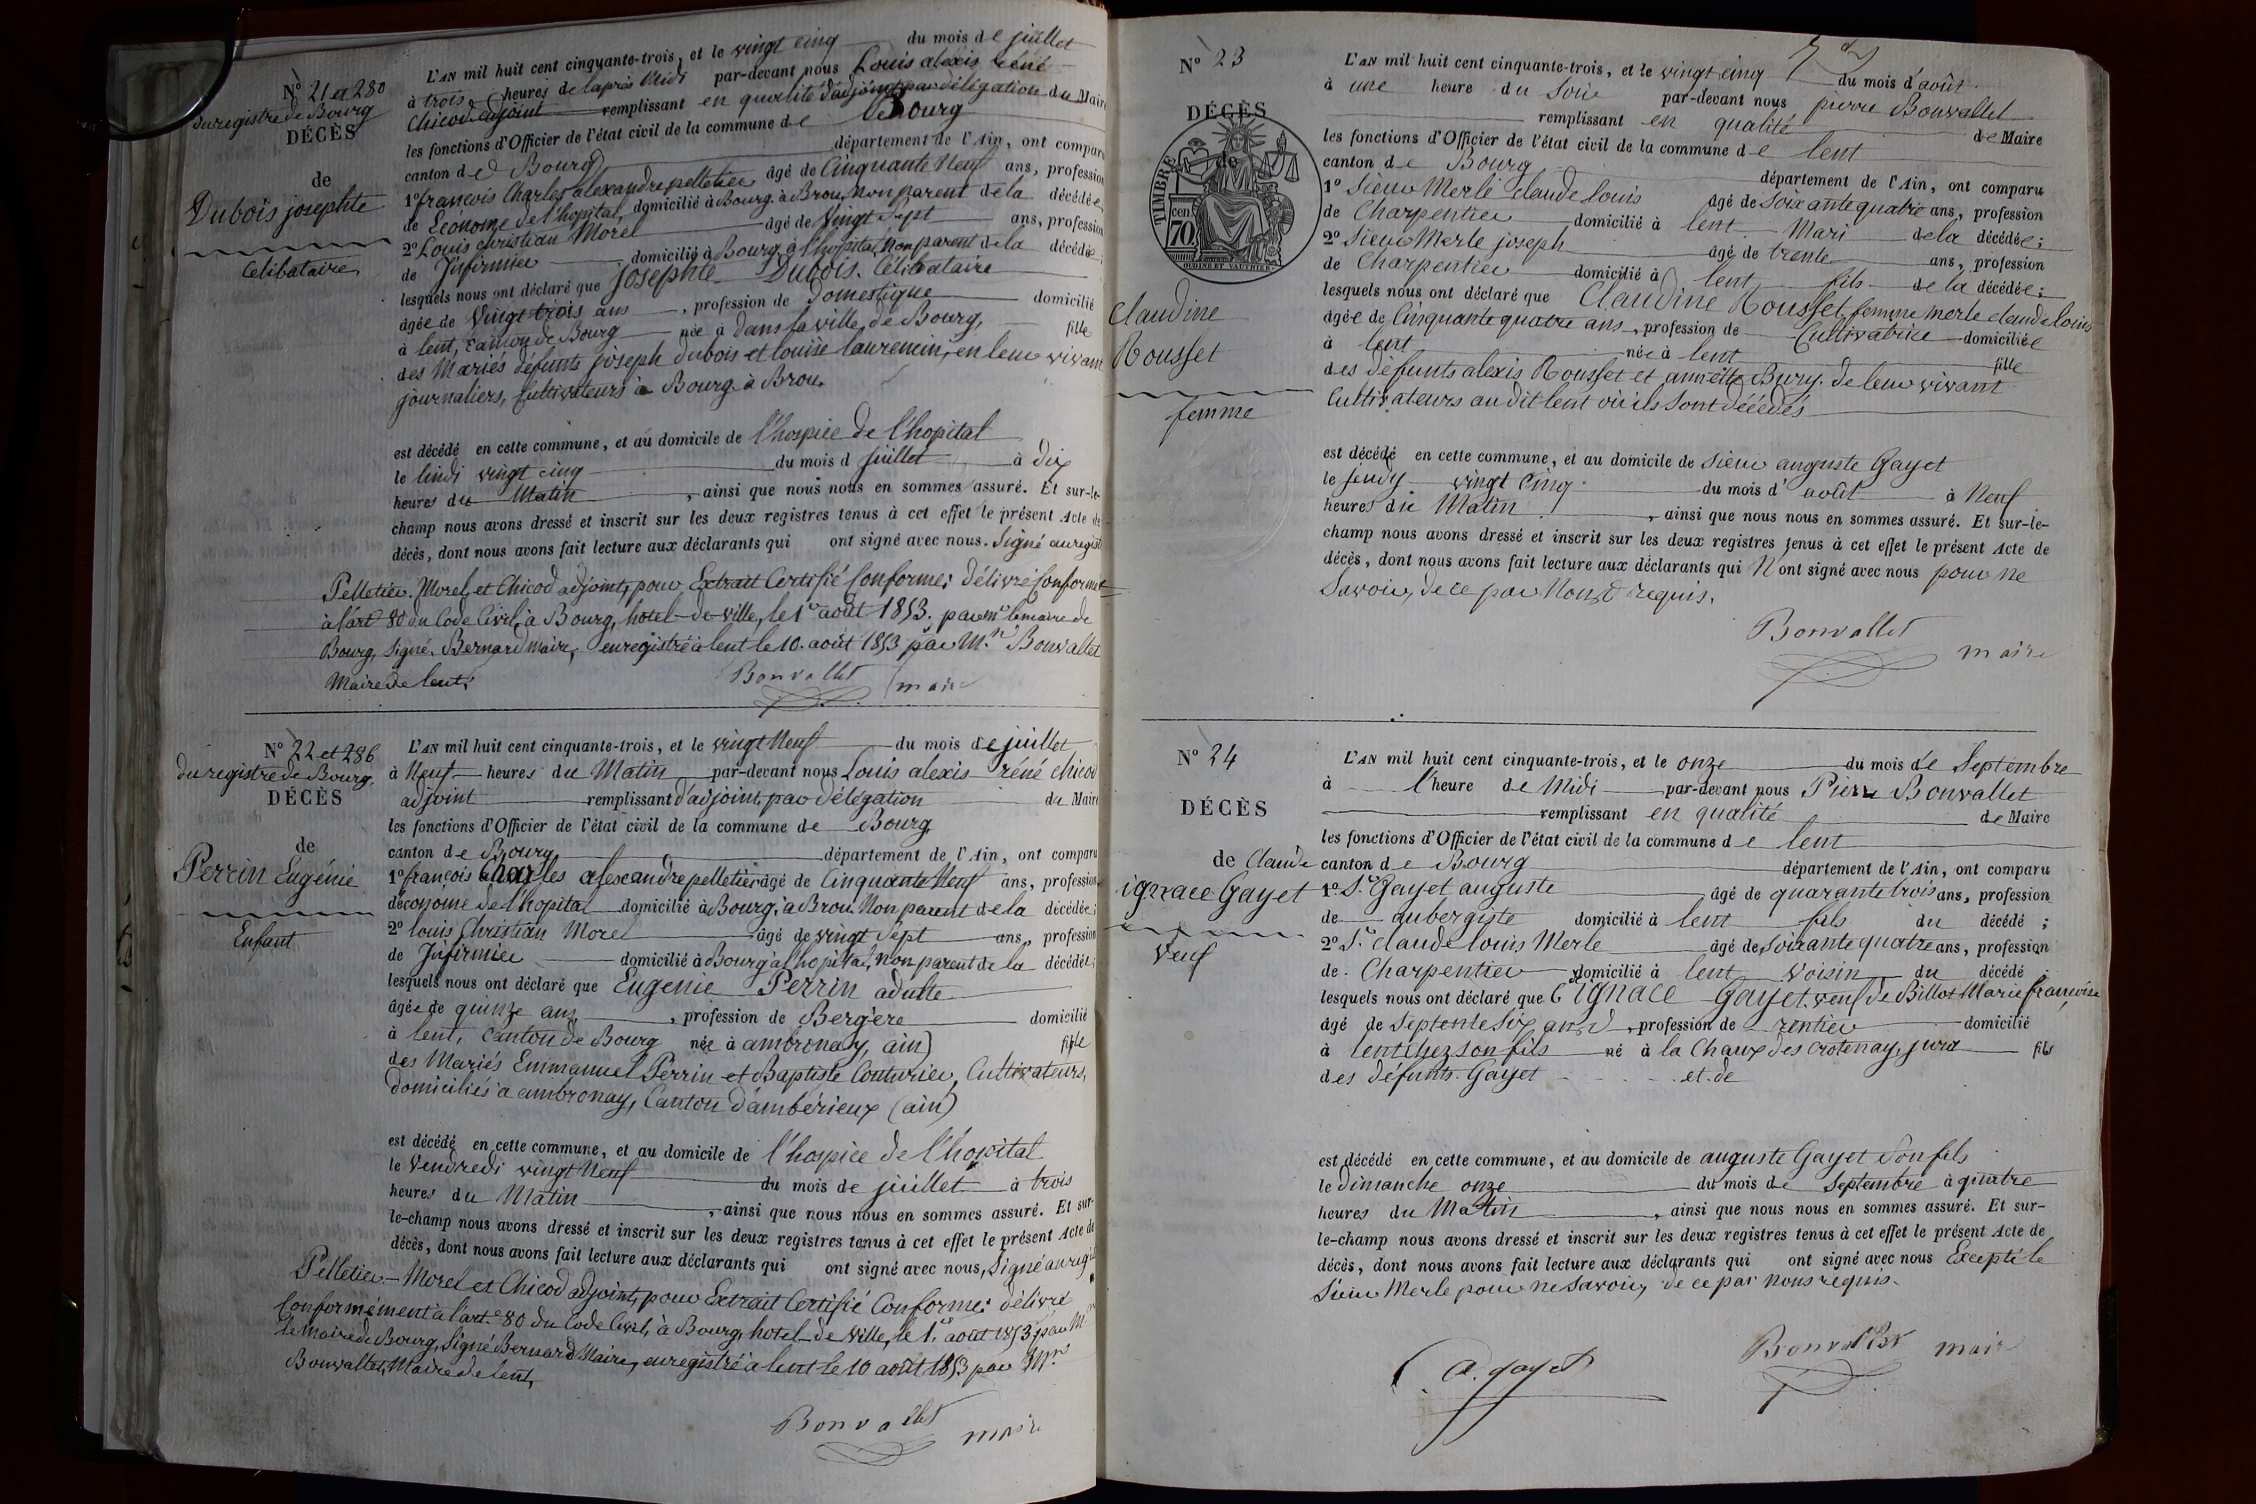 N° 21 et 280
du registre de Bourg
DÉCÈS
de
Dubois josephte
Célibataire
L'AN mil huit cent cinquante-trois, et le vingt cinq du mois de juillet
à trois heures de l'après Midi par-devant nous Louis alexis réné
Chicod adjoint remplissant en qualité d'adjoint par délégation du Maire
les fonctions d'Officier de l'état civil de la commune de Bourg
canton de Bourg département de l'Ain, ont comparu
1° françois Charles alexandre pelletier âgé de Cinquante Neuf ans, profession
de Économe de l'hopital, domicilié à Bourg à Brou, Non parent de la décédée;
2° Louis Christian Morel âgé de Vingt Sept ans, profession
de Infirmier domicilié à Bourg à l'hopital, Non parent de la décédée;
lesquels nous ont déclaré que Josephte Dubois. Célibataire
âgée de Vingt trois ans, profession de Domestique domicilié
à lent, canton de Bourg née à dans la ville de Bourg, fille
des Mariés défunts joseph dubois et louise laurencin, en leur vivant
journaliers, Cultivateurs à Bourg à Brou.
est décédé en cette commune, et au domicile de l'hospice de l'hopital
le lundi vingt cinq du mois d juillet à dix
heures du Matin, ainsi que nous nous en sommes assuré. Et sur-le-
champ nous avons dressé et inscrit sur les deux registres tenus à cet effet le présent Acte de
décès, dont nous avons fait lecture aux déclarants qui ont signé avec nous. Signé au regist
Pelletier. Morel et Chicod adjoint, pour Extrait Certifié Conforme; Délivré Conformt
à l'art 80 du Code Civil, à Bourg, hotel-de-ville, le 1er août 1853. par Mr le maire de
Bourg, Signé. Bernard Maire, enregistré à lent le 10. août 1853 par M.r Bonvallet
Maire de lent.
Bonvallet maire
N° 22 et 286
du registre de Bourg.
DÉCÈS
de
Perrin Eugénie
Enfant
L'AN mil huit cent cinquante-trois, et le vingt Neuf du mois de juillet
à Neuf heures du Matin par-devant nous Louis alexis réné chicod
adjoint remplissant d'adjoint, par délégation du Maire
les fonctions d'Officier de l'état civil de la commune de Bourg
canton de Bourg département de l'Ain, ont comparu
1° françois Charles alexandre pelletier âgé de Cinquante Neuf ans, profession
d'économe de l'hopital domicilié à Bourg, à Brou. Non parent de la décédée;
2° louis Christian Morel âgé de vingt Sept ans, profession
de Infirmier domicilié à Bourg à l'hopital, Non parent de la décédée;
lesquels nous ont déclaré que Eugenie Perrin adulte
âgée de quinze ans, profession de Bergere domicilié
à lent, canton de Bourg née à ambronay, ain) fille
des Mariés Emmanuel Perrin et Baptiste Couturier, Cultivateurs,
domiciliés à ambronay, Canton d'ambérieux (ain)
est décédé en cette commune, et au domicile de l'hospice de l'hopital
le Vendredi vingt Neuf du mois de juillet à trois
heures du Matin, ainsi que nous nous en sommes assuré. Et sur-
le-champ nous avons dressé et inscrit sur les deux registres tenus à cet effet le présent Acte de
décès, dont nous avons fait lecture aux déclarants qui ont signé avec nous, Signé au regist
Pelletier - Morel et Chicod adjoint, pour Extrait Certifié Conforme; délivré
Conformément à l'art. 80 du Code Civil, à Bourg, hotel-de-Ville, le 1er août 1853 par Mr
le Maire de Bourg, Signé Bernard Maire, enregistré à lent le 10 août 1853 par Mr
Bonvallet, Maire de lent,
Bonvallet maire
N° 23
DÉCÈS
de
TIMBRE
70 cen
OUDINE ET VAUTHIER
Claudine
Rousset
femme
L'AN mil huit cent cinquante-trois, et le vingt cinq du mois d'août
à une heure du Soir par-devant nous pierre Bonvallet
remplissant en qualité de Maire
les fonctions d'Officier de l'état civil de la commune de lent
canton de Bourg département de l'Ain, ont comparu
1° Sieur Merle claude louis âgé de soixante quatre ans, profession
de Charpentier domicilié à lent Mari de la décédée;
2° Sieur Merle joseph âgé de trente ans, profession
de Charpentier domicilié à lent fils de la décédée;
lesquels nous ont déclaré que Claudine Rousset, femme merle claude louis
âgée de Cinquante quatre ans, profession de Cultivatrice domiciliée
à lent née à lent fille
des défunts alexis Rousset et annette Bury. de leur vivant
Cultivateurs au dit lent où ils sont décédés
est décédé en cette commune, et au domicile de sieur auguste Gayet
le Jeudy vingt Cinq du mois d'août à Neuf
heures du Matin, ainsi que nous nous en sommes assuré. Et sur-le-
champ nous avons dressé et inscrit sur les deux registres tenus à cet effet le présent Acte de
décès, dont nous avons fait lecture aux déclarants qui N'ont signé avec nous pour ne
Savoir, de ce par Nous requis.
Bonvallet maire
N° 24
DÉCÈS
de Claude
ignace Gayet
Veuf
L'AN mil huit cent cinquante-trois, et le onze du mois de Septembre
à l'heure de Midi par-devant nous Pierre Bonvallet
remplissant en qualité de Maire
les fonctions d'Officier de l'état civil de la commune de lent
canton de Bourg département de l'Ain, ont comparu
1° Sr Gayet auguste âgé de quarante trois ans, profession
de aubergiste domicilié à lent fils du décédé;
2° Sr claude louis Merle âgé de soixante quatre ans, profession
de Charpentier domicilié à lent voisin du décédé;
lesquels nous ont déclaré que Cde Ignace Gayet, veuf de Billot Marie françoise
âgé de septente six ans, profession de rentier domicilié
à lent chez son fils né à la Chaux des Crotenay, jura fils
des défunts Gayet et de
est décédé en cette commune, et au domicile de auguste Gayet son fils
le dimanche onze du mois de Septembre à quatre
heures du Matin, ainsi que nous nous en sommes assuré. Et sur-
le-champ nous avons dressé et inscrit sur les deux registres tenus à cet effet le présent Acte de
décès, dont nous avons fait lecture aux déclarants qui ont signé avec nous Excepté le
Sieur Merle pour ne savoir, de ce par Nous requis.
A. gayet Bonvallet maire